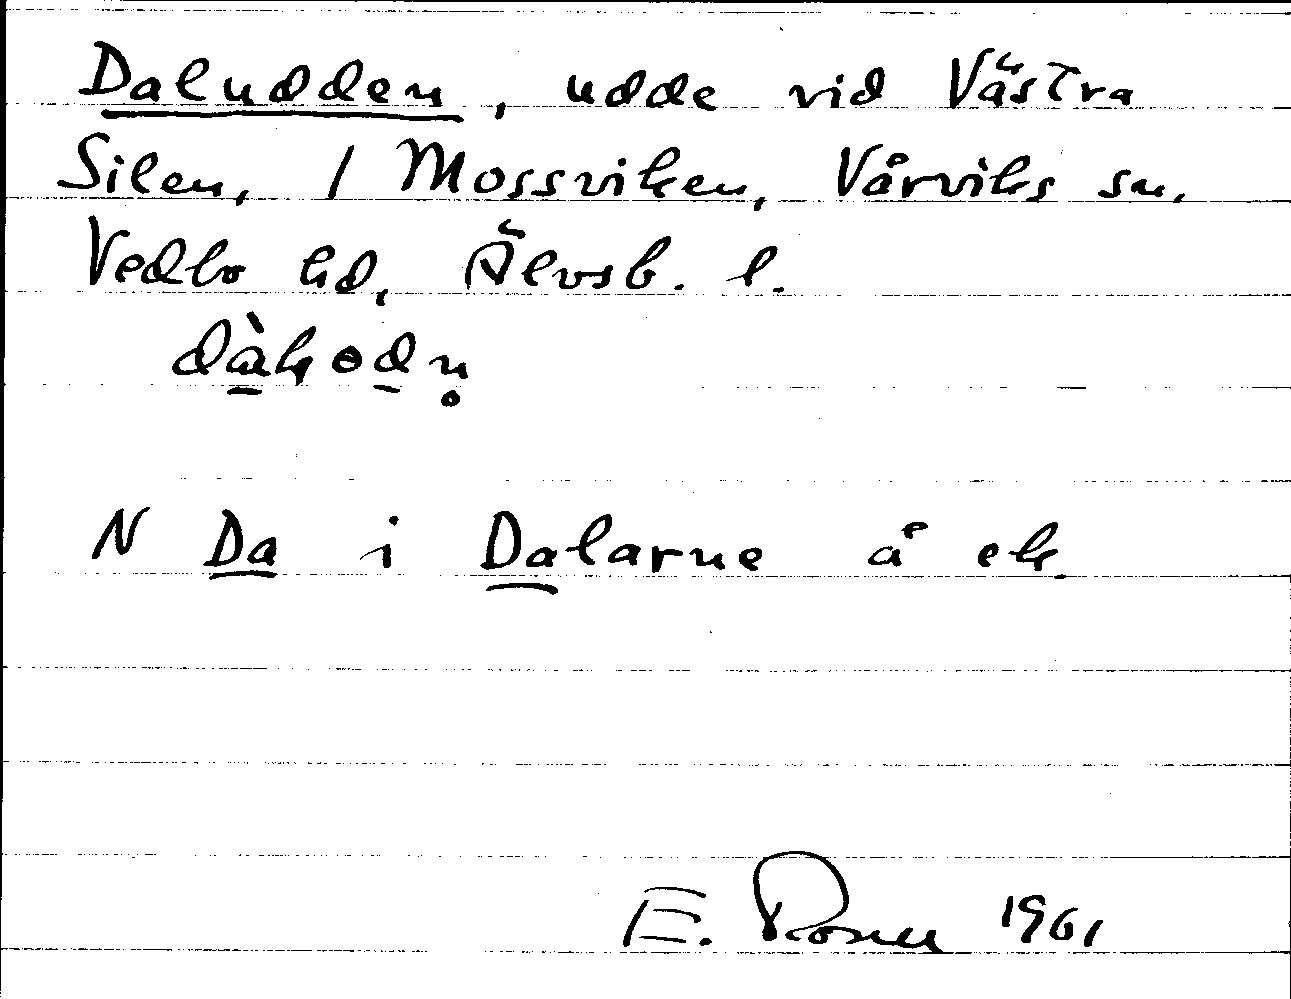 Daludden, udde vid Västra
Silen, / Mossviken, Vårviks sn.
Vedbo hd, Älvsb. l.
N Da i Dalarne å ek
E. 1961